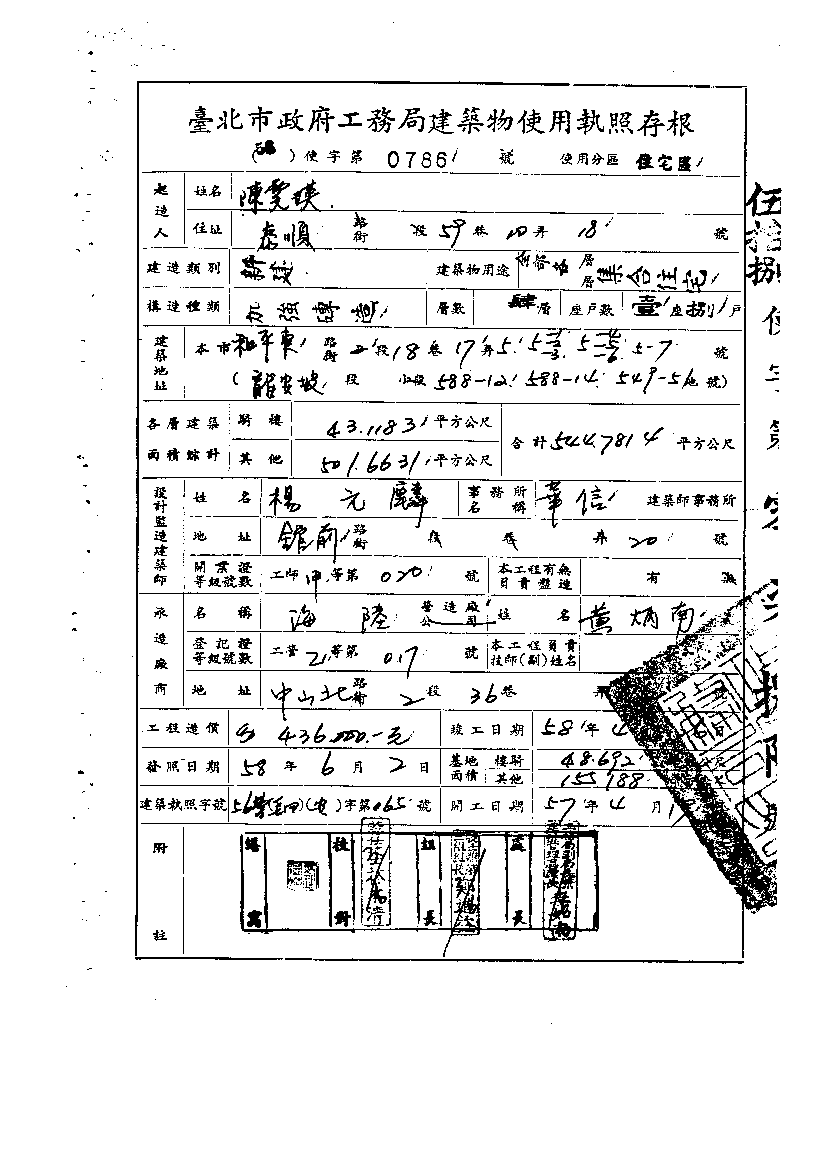 臺北市政府工務局建築物使用執照存根
(58)使字第 0786 號 使用分區 住宅區
起造人 姓名 陳雯瑛
住址 泰順 路街 段 59 巷 四 弄 18 號
建造類別 新建 建築物用途 層 層 集合住宅
構造種類 加強磚造 層數 肆層 座戶數 壹座捌戶
建築地址 本市 和平東 路街 2 段 18 巷 17 弄 5. 5-7 號
(龍安坡 段 小段 588-12. 588-14. 549-51 地號)
各層建築面積綜計 騎樓 43.1183 平方公尺 合計 544.7814 平方公尺
其他 501.6631 平方公尺
設計監造建築師 姓名 楊元麟 事務所名稱 華信 建築師事務所
地址 館前 路街 段 巷 弄 20 號
開業證等級號數 工師 甲 等第 020 號 本工程有無負責監造 有 無
承造廠商 名稱 海陸 營造廠公司 姓名 黃炳南
登記證等級號數 工營 乙 等第 017 號 本工程負責技師(副)姓名
地址 中山北 路街 2 段 36 巷 弄 號
工程造價 436,000.-元 竣工日期 58年4
發照日期 58年6月2日 基地面積 騎樓 48.692
其他 155.188
建築執照字號 字第065號 開工日期 57年4月
附註 繕寫 校對 組長 處長
伍拾捌使字第零